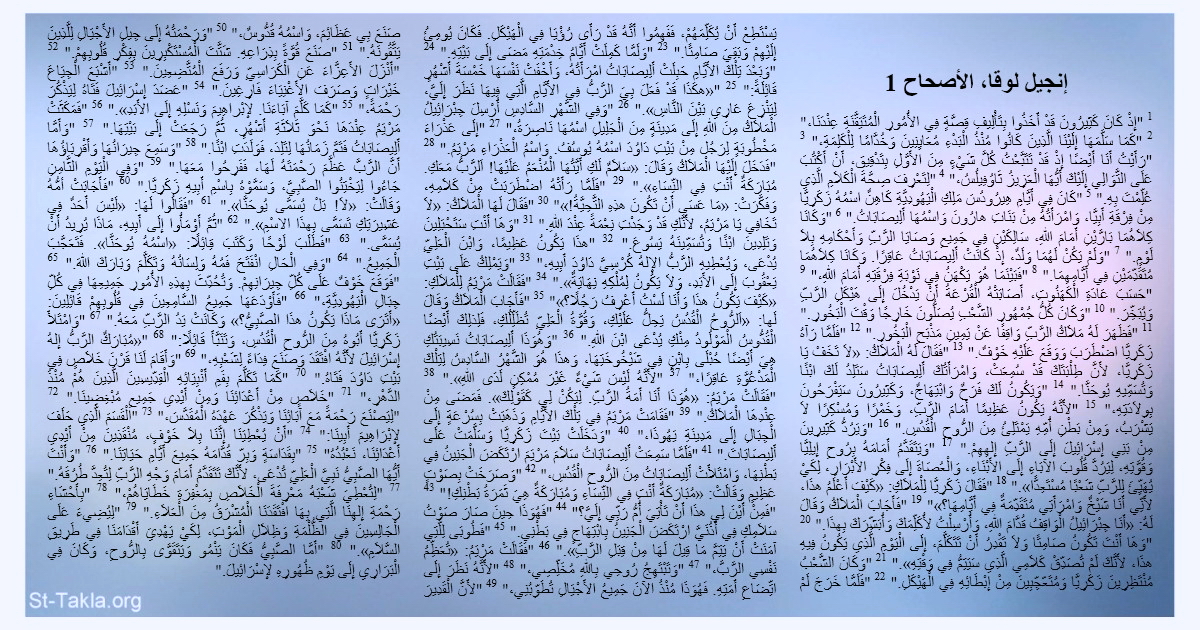 إنجيل لوقا، الأصحاح 1
1 "إِذْ كَانَ كَثِيرُونَ قَدْ أَخَذُوا بِتَأْلِيفِ قِصَّةٍ فِي الأُمُورِ الْمُتَيَقَّنَةِ عِنْدَنَا،"
2 "كَمَا سَلَّمَهَا إِلَيْنَا الَّذِينَ كَانُوا مُنْذُ الْبَدْءِ مُعَايِنِينَ وَخُدَّامًا لِلْكَلِمَةِ،" 3
"رَأَيْتُ أَنَا أَيْضًا إِذْ قَدْ تَتَبَّعْتُ كُلَّ شَيْءٍ مِنَ الأَوَّلِ بِتَدْقِيق، أَنْ أَكْتُبَ
عَلَى التَّوَالِي إِلَيْكَ أَيُّهَا الْعَزِيزُ ثَاوُفِيلُسُ،" 4 "لِتَعْرِفَ صِحَّةَ الْكَلاَمِ الَّذِي
عُلِّمْتَ بِهِ." 5 "كَانَ فِي أَيَّامِ هِيرُودُسَ مَلِكِ الْيَهُودِيَّةِ كَاهِنٌ اسْمُهُ زَكَرِيَّا
مِنْ فِرْقَةِ أَبِيَّا، وَامْرَأَتُهُ مِنْ بَنَاتِ هارُونَ وَاسْمُهَا أَلِيصَابَاتُ." 6 "وَكَانَا
كِلاَهُمَا بَارَّيْنِ أَمَامَ اللهِ، سَالِكَيْنِ فِي جَمِيعِ وَصَايَا الرَّبِّ وَأَحْكَامِهِ بِلاَ
لَوْمٍ." 7 "وَلَمْ يَكُنْ لَهُمَا وَلَدٌ، إِذْ كَانَتْ أَلِيصَابَاتُ عَاقِرًا. وَكَانَا كِلاَهُمَا
مُتَقَدِّمَيْنِ فِي أَيَّامِهِمَا." 8 "فَبَيْنَمَا هُوَ يَكْهَنُ فِي نَوْبَةِ فِرْقَتِهِ أَمَامَ اللهِ،" 9
"حَسَبَ عَادَةِ الْكَهَنُوتِ، أَصَابَتْهُ الْقُرْعَةُ أَنْ يَدْخُلَ إِلَى هَيْكَلِ الرَّبِّ
وَيُبَخِّرَ." 10 "وَكَانَ كُلُّ جُمْهُورِ الشَّعْبِ يُصَلُّونَ خَارِجًا وَقْتَ الْبَخُورِ."
11 "فَظَهَرَ لَهُ مَلاَكُ الرَّبِّ وَاقِفًا عَنْ يَمِينِ مَذْبَحِ الْبَخُورِ." 12 "فَلَمَّا رَآهُ
زَكَرِيَّا اضْطَرَبَ وَوَقَعَ عَلَيْهِ خَوْفٌ." 13 "فَقَالَ لَهُ الْمَلاَكُ: «لاَ تَخَفْ يَا
زَكَرِيَّا، لأَنَّ طِلْبَتَكَ قَدْ سُمِعَتْ، وَامْرَأَتُكَ أَلِيصَابَاتُ سَتَلِدُ لَكَ ابْنًا
وَتُسَمِّيهِ يُوحَنَّا." 14 "وَيَكُونُ لَكَ فَرَحٌ وَابْتِهَاجٌ، وَكَثِيرُونَ سَيَفْرَحُونَ
بِوِلاَدَتِهِ،" 15 "لأَنَّهُ يَكُونُ عَظِيمًا أَمَامَ الرَّبِّ، وَخَمْرًا وَمُسْكِرًا لاَ
يَشْرَبُ، وَمِنْ بَطْنِ أُمِّهِ يَمْتَلِئُ مِنَ الرُّوحِ الْقُدُسِ." 16 "وَيَرُدُّ كَثِيرِينَ
مِنْ بَنِي إِسْرَائِيلَ إِلَى الرَّبِّ إِلهِهِمْ." 17 "وَيَتَقَدَّمُ أَمَامَهُ بِرُوحِ إِيلِيَّا
وَقُوَّتِهِ، لِيَرُدَّ قُلُوبَ الآبَاءِ إِلَى الأَبْنَاءِ، وَالْعُصَاةَ إِلَى فِكْرِ الأَبْرَارِ، لِكَيْ
يُهَيِّئَ لِلرَّبِّ شَعْبًا مُسْتَعِدًّا»." 18 "فَقَالَ زَكَرِيَّا لِلْمَلاَكِ: «كَيْفَ أَعْلَمُ هذَا،
لأَنِّي أَنَا شَيْخٌ وَامْرَأَتِي مُتَقَدِّمَةٌ فِي أَيَّامِهَا؟»" 19 "فَأَجَابَ الْمَلاَكُ وَقَالَ
لَهُ: «أَنَا جِبْرَائِيلُ الْوَاقِفُ قُدَّامَ اللهِ، وَأُرْسِلْتُ لأُكَلِّمَكَ وَأُبَشِّرَكَ بِهذَا." 20
"وَهَا أَنْتَ تَكُونُ صَامِتًا وَلاَ تَقْدِرُ أَنْ تَتَكَلَّمَ، إِلَى الْيَوْمِ الَّذِي يَكُونُ فِيهِ
هذَا، لأَنَّكَ لَمْ تُصَدِّقْ كَلاَمِي الَّذِي سَيَتِمُّ فِي وَقْتِهِ»." 21 "وَكَانَ الشَّعْبُ
مُنْتَظِرِينَ زَكَرِيَّا وَمُتَعَجِّبِينَ مِنْ إِبْطَائِهِ فِي الْهَيْكَلِ." 22 "فَلَمَّا خَرَجَ لَمْ
يَسْتَطِعْ أَنْ يُكَلِّمَهُمْ، فَفَهِمُوا أَنَّهُ قَدْ رَأَى رُؤْيَا فِي الْهَيْكَلِ. فَكَانَ يُومِئُ
إِلَيْهِمْ وَبَقِيَ صَامِتًا." 23 "وَلَمَّا كَمِلَتْ أَيَّامُ خِدْمَتِهِ مَضَى إِلَى بَيْتِهِ." 24
"وَبَعْدَ تِلْكَ الأَيَّامِ حَبِلَتْ أَلِيصَابَاتُ امْرَأَتُهُ، وَأَخْفَتْ نَفْسَهَا خَمْسَةَ أَشْهُرٍ
قَائِلَةً:" 25 "«هكَذَا قَدْ فَعَلَ بِيَ الرَّبُّ فِي الأَيَّامِ الَّتِي فِيهَا نَظَرَ إِلَيَّ،
لِيَنْزِعَ عَارِي بَيْنَ النَّاسِ»." 26 "وَفِي الشَّهْرِ السَّادِسِ أُرْسِلَ جِبْرَائِيلُ
الْمَلاَكُ مِنَ اللهِ إِلَى مَدِينَةٍ مِنَ الْجَلِيلِ اسْمُهَا نَاصِرَةُ،" 27 "إِلَى عَذْرَاءَ
مَخْطُوبَةٍ لِرَجُل مِنْ بَيْتِ دَاوُدَ اسْمُهُ يُوسُفُ. وَاسْمُ الْعَذْرَاءِ مَرْيَمُ." 28
"فَدَخَلَ إِلَيْهَا الْمَلاَكُ وَقَالَ: «سَلاَمٌ لَكِ أَيَّتُهَا الْمُنْعَمُ عَلَيْهَا! اَلرَّبُّ مَعَكِ.
مُبَارَكَةٌ أَنْتِ فِي النِّسَاءِ»." 29 "فَلَمَّا رَأَتْهُ اضْطَرَبَتْ مِنْ كَلاَمِهِ،
وَفَكَّرَتْ: «مَا عَسَى أَنْ تَكُونَ هذِهِ التَّحِيَّةُ!»" 30 "فَقَالَ لَهَا الْمَلاَكُ: «لاَ
تَخَافِي يَا مَرْيَمُ، لأَنَّكِ قَدْ وَجَدْتِ نِعْمَةً عِنْدَ اللهِ." 31 "وَهَا أَنْتِ سَتَحْبَلِينَ
وَتَلِدِينَ ابْنًا وَتُسَمِّينَهُ يَسُوعَ." 32 "هذَا يَكُونُ عَظِيمًا، وَابْنَ الْعَلِيِّ
يُدْعَى، وَيُعْطِيهِ الرَّبُّ الإِلهُ كُرْسِيَّ دَاوُدَ أَبِيهِ،" 33 "وَيَمْلِكُ عَلَى بَيْتِ
يَعْقُوبَ إِلَى الأَبَدِ، وَلاَ يَكُونُ لِمُلْكِهِ نِهَايَةٌ»." 34 "فَقَالَتْ مَرْيَمُ لِلْمَلاَكِ:
«كَيْفَ يَكُونُ هذَا وَأَنَا لَسْتُ أَعْرِفُ رَجُلًا؟»" 35 "فَأَجَابَ الْمَلاَكُ وَقَالَ
لَها: «اَلرُّوحُ الْقُدُسُ يَحِلُّ عَلَيْكِ، وَقُوَّةُ الْعَلِيِّ تُظَلِّلُكِ، فَلِذلِكَ أَيْضًا
الْقُدُّوسُ الْمَوْلُودُ مِنْكِ يُدْعَى ابْنَ اللهِ." 36 "وَهُوَذَا أَلِيصَابَاتُ نَسِيبَتُكِ
هِيَ أَيْضًا حُبْلَى بِابْنٍ فِي شَيْخُوخَتِهَا، وَهذَا هُوَ الشَّهْرُ السَّادِسُ لِتِلْكَ
الْمَدْعُوَّةِ عَاقِرًا،" 37 "لأَنَّهُ لَيْسَ شَيْءٌ غَيْرَ مُمْكِنٍ لَدَى اللهِ»." 38
"فَقَالَتْ مَرْيَمُ: «هُوَذَا أَنَا أَمَةُ الرَّبِّ. لِيَكُنْ لِي كَقَوْلِكَ». فَمَضَى مِنْ
عِنْدِهَا الْمَلاَكُ." 39 "فَقَامَتْ مَرْيَمُ فِي تِلْكَ الأَيَّامِ وَذَهَبَتْ بِسُرْعَةٍ إِلَى
الْجِبَالِ إِلَى مَدِينَةِ يَهُوذَا،" 40 "وَدَخَلَتْ بَيْتَ زَكَرِيَّا وَسَلَّمَتْ عَلَى
أَلِيصَابَاتَ." 41 "فَلَمَّا سَمِعَتْ أَلِيصَابَاتُ سَلاَمَ مَرْيَمَ ارْتَكَضَ الْجَنِينُ فِي
بَطْنِهَا، وَامْتَلأَتْ أَلِيصَابَاتُ مِنَ الرُّوحِ الْقُدُسِ،" 42 "وَصَرَخَتْ بِصَوْتٍ
عَظِيمٍ وَقَالَتْ: «مُبَارَكَةٌ أَنْتِ فِي النِّسَاءِ وَمُبَارَكَةٌ هِيَ ثَمَرَةُ بَطْنِكِ!" 43
"فَمِنْ أَيْنَ لِي هذَا أَنْ تَأْتِيَ أُمُّ رَبِّي إِلَيَّ؟" 44 "فَهُوَذَا حِينَ صَارَ صَوْتُ
سَلاَمِكِ فِي أُذُنَيَّ ارْتَكَضَ الْجَنِينُ بِابْتِهَاجٍ فِي بَطْنِي." 45 "فَطُوبَى لِلَّتِي
آمَنَتْ أَنْ يَتِمَّ مَا قِيلَ لَهَا مِنْ قِبَلِ الرَّبِّ»." 46 "فَقَالَتْ مَرْيَمُ: «تُعَظِّمُ
نَفْسِي الرَّبَّ،" 47 "وَتَبْتَهِجُ رُوحِي بِاللهِ مُخَلِّصِي،" 48 "لأَنَّهُ نَظَرَ إِلَى
اتِّضَاعِ أَمَتِهِ. فَهُوَذَا مُنْذُ الآنَ جَمِيعُ الأَجْيَالِ تُطَوِّبُنِي،" 49 "لأَنَّ الْقَدِيرَ
صَنَعَ بِي عَظَائِمَ، وَاسْمُهُ قُدُّوسٌ،" 50 "وَرَحْمَتُهُ إِلَى جِيلِ الأَجْيَالِ لِلَّذِينَ
يَتَّقُونَهُ." 51 "صَنَعَ قُوَّةً بِذِرَاعِهِ. شَتَّتَ الْمُسْتَكْبِرِينَ بِفِكْرِ قُلُوبِهِمْ." 52
"أَنْزَلَ الأَعِزَّاءَ عَنِ الْكَرَاسِيِّ وَرَفَعَ الْمُتَّضِعِينَ." 53 "أَشْبَعَ الْجِيَاعَ
خَيْرَاتٍ وَصَرَفَ الأَغْنِيَاءَ فَارِغِينَ." 54 "عَضَدَ إِسْرَائِيلَ فَتَاهُ لِيَذْكُرَ
رَحْمَةً،" 55 "كَمَا كَلَّمَ آبَاءَنَا. لإِبْراهِيمَ وَنَسْلِهِ إِلَى الأَبَدِ»." 56 "فَمَكَثَتْ
مَرْيَمُ عِنْدَهَا نَحْوَ ثَلاَثَةِ أَشْهُرٍ، ثُمَّ رَجَعَتْ إِلَى بَيْتِهَا." 57 "وَأَمَّا
أَلِيصَابَاتُ فَتَمَّ زَمَانُهَا لِتَلِدَ، فَوَلَدَتِ ابْنًا." 58 "وَسَمِعَ جِيرَانُهَا وَأَقْرِبَاؤُهَا
أَنَّ الرَّبَّ عَظَّمَ رَحْمَتَهُ لَهَا، فَفَرِحُوا مَعَهَا." 59 "وَفِي الْيَوْمِ الثَّامِنِ
جَاءُوا لِيَخْتِنُوا الصَّبِيَّ، وَسَمَّوْهُ بِاسْمِ أَبِيهِ زَكَرِيَّا." 60 "فَأَجَابَتْ أُمُّهُ
وَقَالَتْ: «لاَ! بَلْ يُسَمَّى يُوحَنَّا»." 61 "فَقَالُوا لَهَا: «لَيْسَ أَحَدٌ فِي
عَشِيرَتِكِ تَسَمَّى بِهذَا الاسْمِ»." 62 "ثُمَّ أَوْمَأُوا إِلَى أَبِيهِ، مَاذَا يُرِيدُ أَنْ
يُسَمَّى." 63 "فَطَلَبَ لَوْحًا وَكَتَبَ قِائِلًا: «اسْمُهُ يُوحَنَّا». فَتَعَجَّبَ
الْجَمِيعُ." 64 "وَفِي الْحَالِ انْفَتَحَ فَمُهُ وَلِسَانُهُ وَتَكَلَّمَ وَبَارَكَ اللهَ." 65
"فَوَقَعَ خَوْفٌ عَلَى كُلِّ جِيرَانِهِمْ. وَتُحُدِّثَ بِهذِهِ الأُمُورِ جَمِيعِهَا فِي كُلِّ
جِبَالِ الْيَهُودِيَّةِ،" 66 "فَأَوْدَعَهَا جَمِيعُ السَّامِعِينَ فِي قُلُوبِهِمْ قَائِلِينَ:
«أَتَرَى مَاذَا يَكُونُ هذَا الصَّبِيُّ؟» وَكَانَتْ يَدُ الرَّبِّ مَعَهُ." 67 "وَامْتَلأَ
زَكَرِيَّا أَبُوهُ مِنَ الرُّوحِ الْقُدُسِ، وَتَنَبَّأَ قَائِلًا:" 68 "«مُبَارَكٌ الرَّبُّ إِلهُ
إِسْرَائِيلَ لأَنَّهُ افْتَقَدَ وَصَنَعَ فِدَاءً لِشَعْبِهِ،" 69 "وَأَقَامَ لَنَا قَرْنَ خَلاَصٍ فِي
بَيْتِ دَاوُدَ فَتَاهُ." 70 "كَمَا تَكَلَّمَ بِفَمِ أَنْبِيَائِهِ الْقِدِّيسِينَ الَّذِينَ هُمْ مُنْذُ
الدَّهْرِ،" 71 "خَلاَصٍ مِنْ أَعْدَائِنَا وَمِنْ أَيْدِي جَمِيعِ مُبْغِضِينَا." 72
"لِيَصْنَعَ رَحْمَةً مَعَ آبَائِنَا وَيَذْكُرَ عَهْدَهُ الْمُقَدَّسَ،" 73 "الْقَسَمَ الَّذِي حَلَفَ
لإِبْرَاهِيمَ أَبِينَا:" 74 "أَنْ يُعْطِيَنَا إِنَّنَا بِلاَ خَوْفٍ، مُنْقَذِينَ مِنْ أَيْدِي
أَعْدَائِنَا، نَعْبُدُهُ" 75 "بِقَدَاسَةٍ وَبِرّ قُدَّامَهُ جَمِيعَ أَيَّامِ حَيَاتِنَا." 76 "وَأَنْتَ
أَيُّهَا الصَّبِيُّ نَبِيَّ الْعَلِيِّ تُدْعَى، لأَنَّكَ تَتَقَدَّمُ أَمَامَ وَجْهِ الرَّبِّ لِتُعِدَّ طُرُقَهُ."
77 "لِتُعْطِيَ شَعْبَهُ مَعْرِفَةَ الْخَلاَصِ بِمَغْفِرَةِ خَطَايَاهُمْ،" 78 "بِأَحْشَاءِ
رَحْمَةِ إِلهِنَا الَّتِي بِهَا افْتَقَدَنَا الْمُشْرَقُ مِنَ الْعَلاَءِ." 79 "لِيُضِيءَ عَلَى
الْجَالِسِينَ فِي الظُّلْمَةِ وَظِلاَلِ الْمَوْتِ، لِكَيْ يَهْدِيَ أَقْدَامَنَا فِي طَرِيقِ
السَّلاَمِ»." 80 "أَمَّا الصَّبِيُّ فَكَانَ يَنْمُو وَيَتَقَوَّى بِالرُّوحِ، وَكَانَ فِي
الْبَرَارِي إِلَى يَوْمِ ظُهُورِهِ لإِسْرَائِيلَ."
St-Takla.org